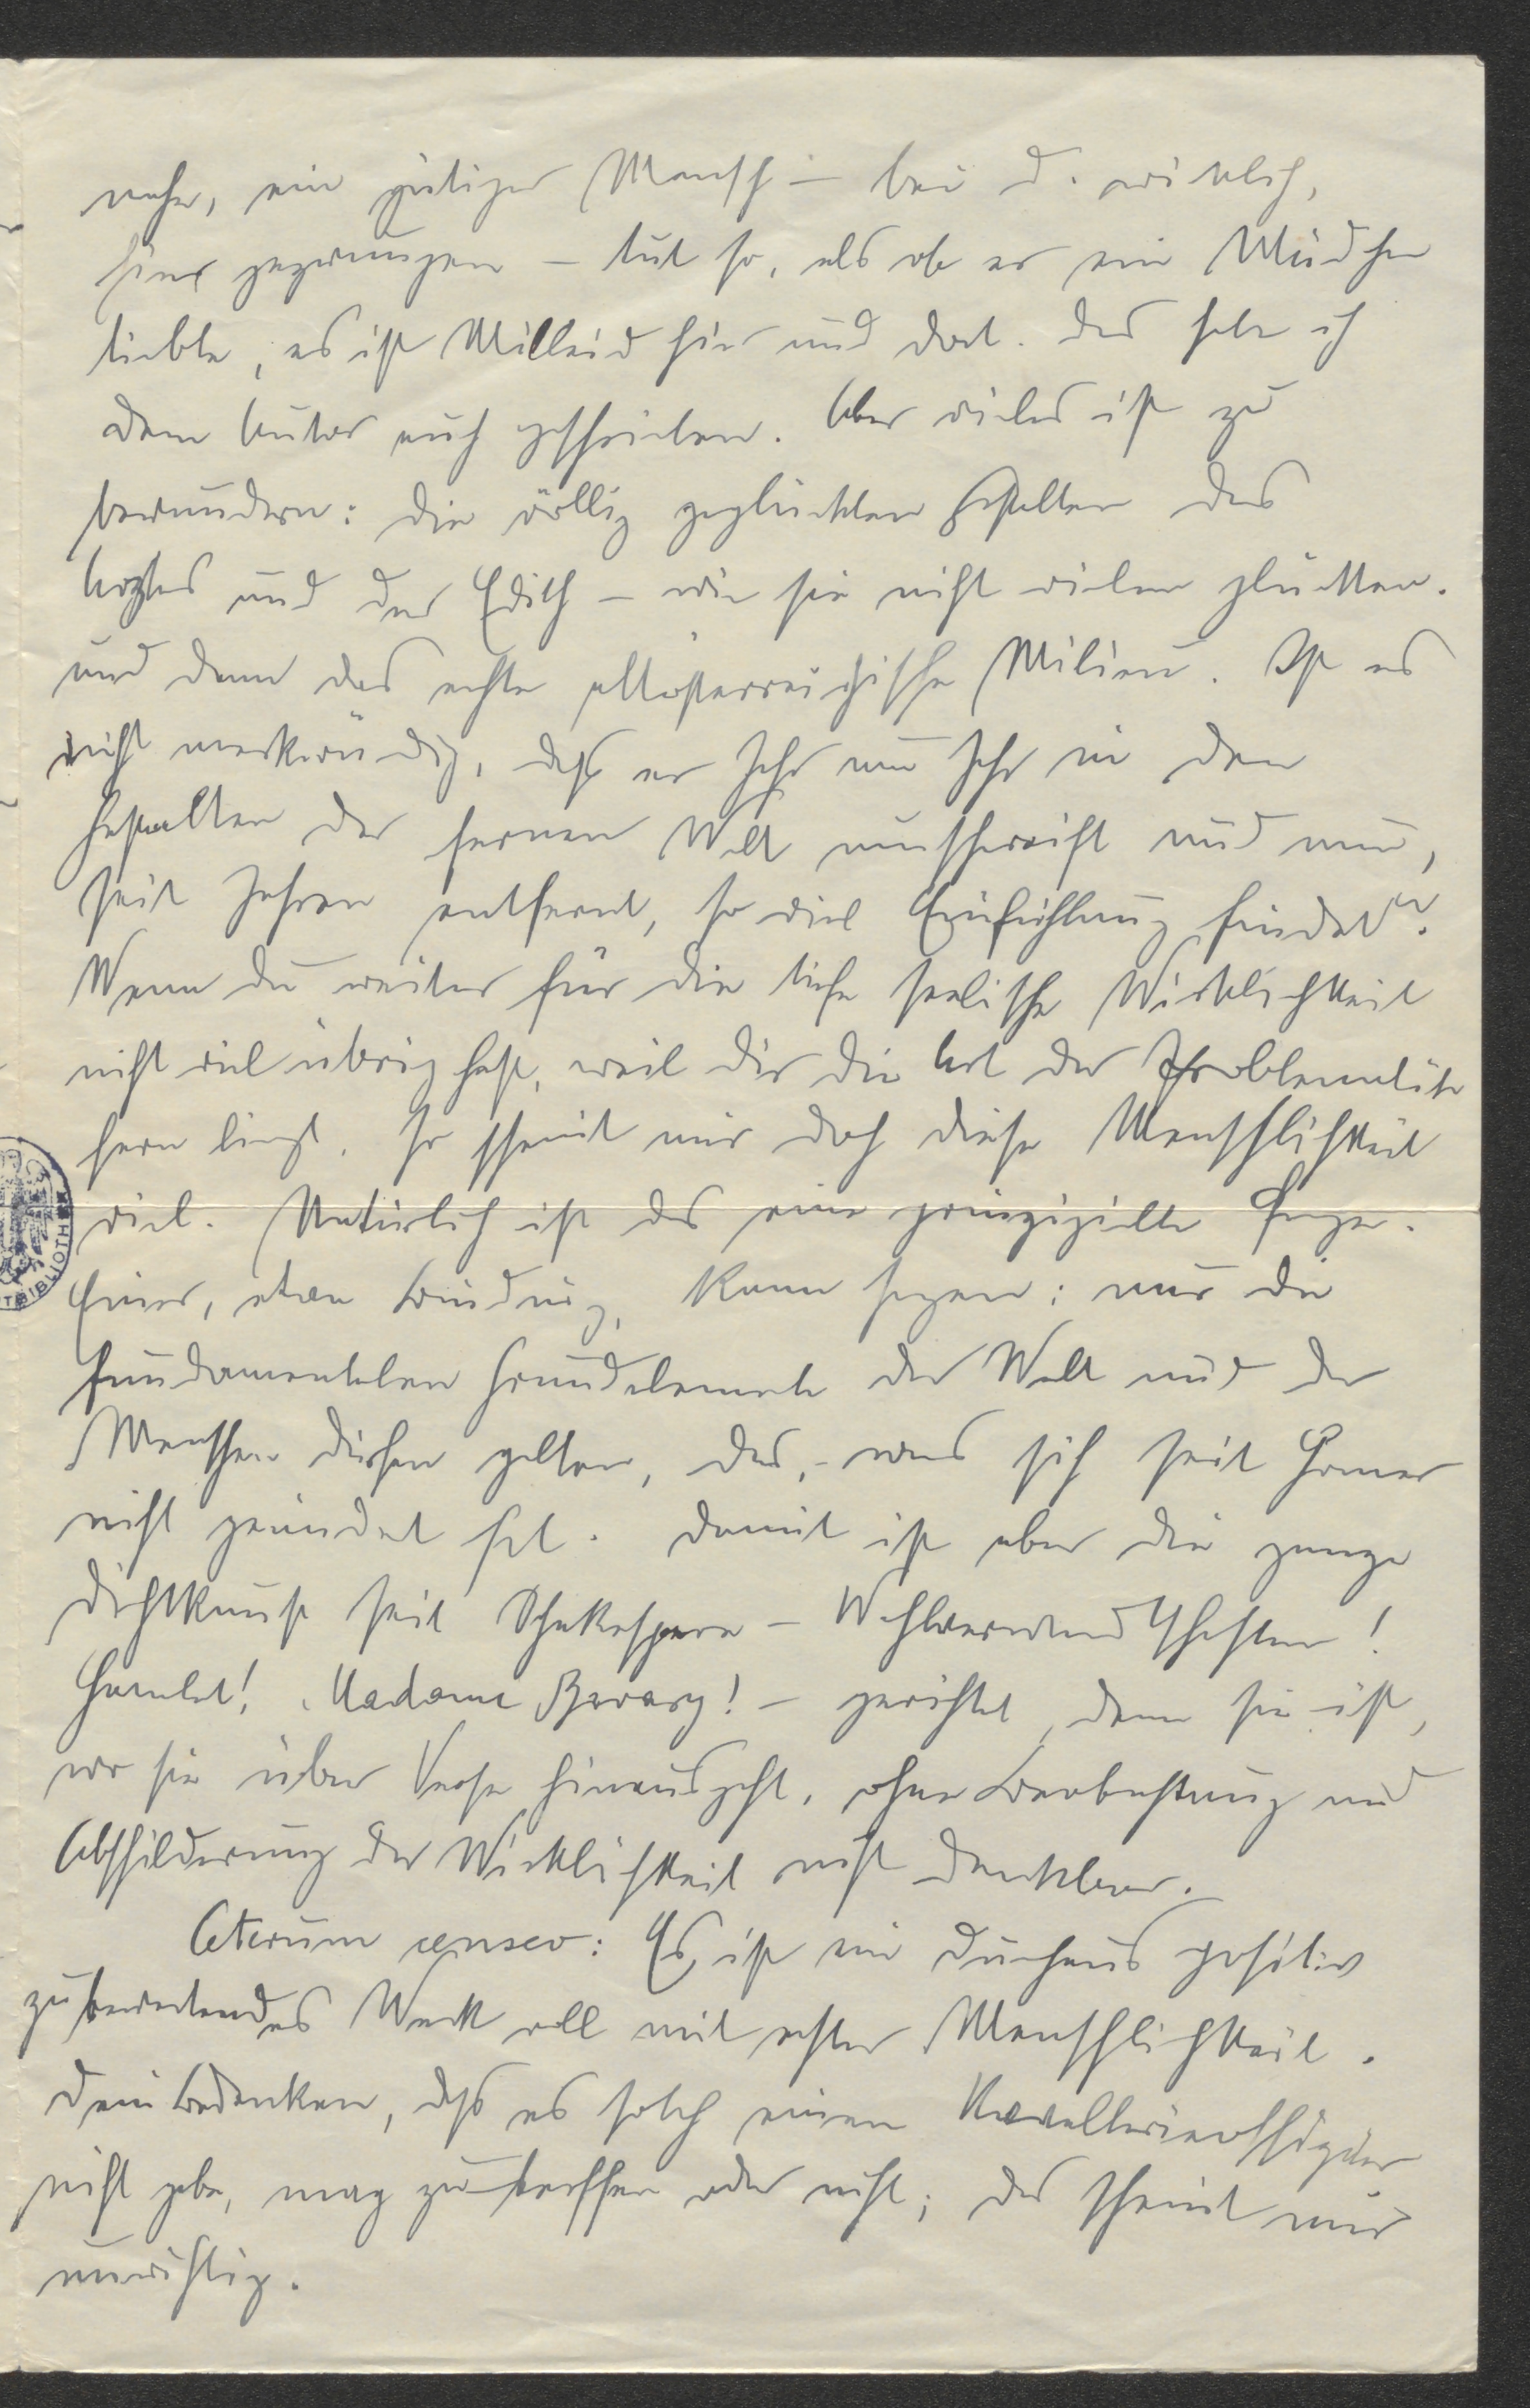 nahe, ein gütiger Mensch – bei D. wirklich,
hier gezwungen – tut so, als ob er ein Mädchen
liebte, es ist Mitleid hier und dort. Das habe ich
dem Autor auch geschrieben. Aber vieles ist zu
bewundern: die völlig geglückten Gestalten des
Arztes und der Edith – wie sie nicht vielen glückten.
und dann das echte altösterreichische Milieu. Ist es
nicht merkwürdig, dass er Jahr um Jahr in den
Gestalten der fernen Welt umschweift und nun,
seit Jahren entfernt, so viel Einfühlung findet?
Wenn du weiter für die tiefe seelische Wirklichkeit
nicht viel übrig hast, weil dir die Art der Problematik
fern liegt, so scheint mir doch diese Menschlichkeit
viel. Natürlich ist das eine prinzipielle Frage.
Einer, etwa Binding, kann sagen: nur die
fundamentalen Grundelemente der Welt und der
Menschen dürfen gelten, das, was sich seit Homer
nicht geändert hat. Damit ist aber die ganze
Dichtkunst seit Shakespeare – Wahlverwandtschaften!
Hamlet! Madame Bovary! – gerichtet, denn sie ist,
wo sie über Verse hinausgeht, ohne Beobachtung und
Abschilderung der Wirklichkeit nicht denkbar.
Ceterum censeo: Es ist ein durchaus positiv
zu bewertendes Werk voll mit echter Menschlichkeit.
Dein Bedenken, dass es solch einen Kavallerieoffizier
nicht gebe, mag zutreffen oder nicht; das scheint mir
unwichtig.